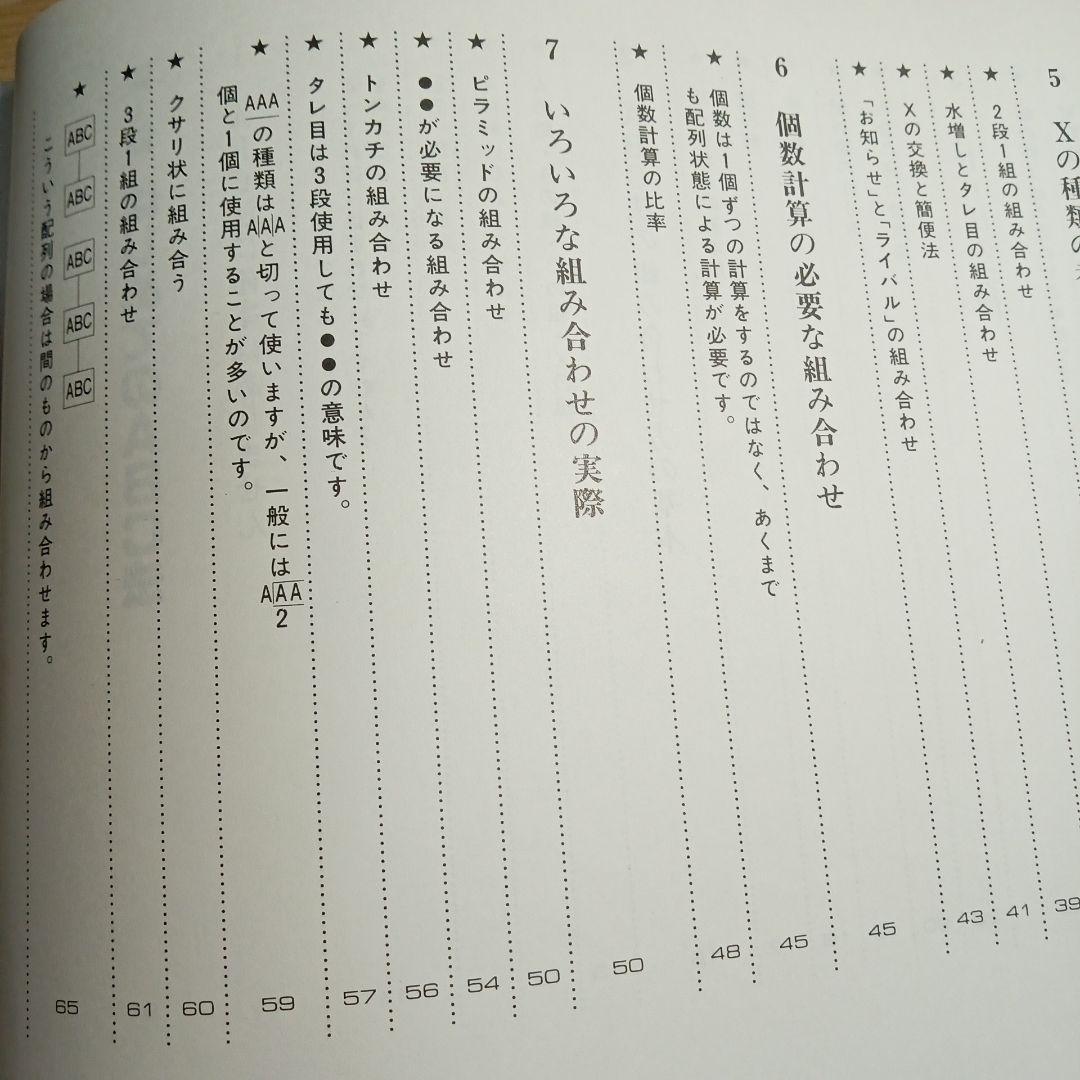 5 Xの種類の
39
★ 2段1組の組み合わせ
41
★ 水増しとタレ目の組み合わせ
43
★ Xの交換と簡便法
★ 「お知らせ」と「ライバル」の組み合わせ
45
6 個数計算の必要な組み合わせ
45
★ 個数は1個ずつの計算をするのではなく、あくまで
も配列状態による計算が必要です。
48
★ 個数計算の比率
50
7 いろいろな組み合わせの実際
50
★ ピラミッドの組み合わせ
54
★ ●●が必要になる組み合わせ
56
★ トンカチの組み合わせ
57
★ タレ目は3段使用しても●●の意味です。
★ AAAの種類はA|A|Aと切って使いますが、一般にはA|AA 2
個と1個に使用することが多いのです。
59
★ クサリ状に組み合う
60
★ 3段1組の組み合わせ
61
★ ABC ABC ABC ABC ABC
こういう配列の場合は間のものから組み合わせます。
65